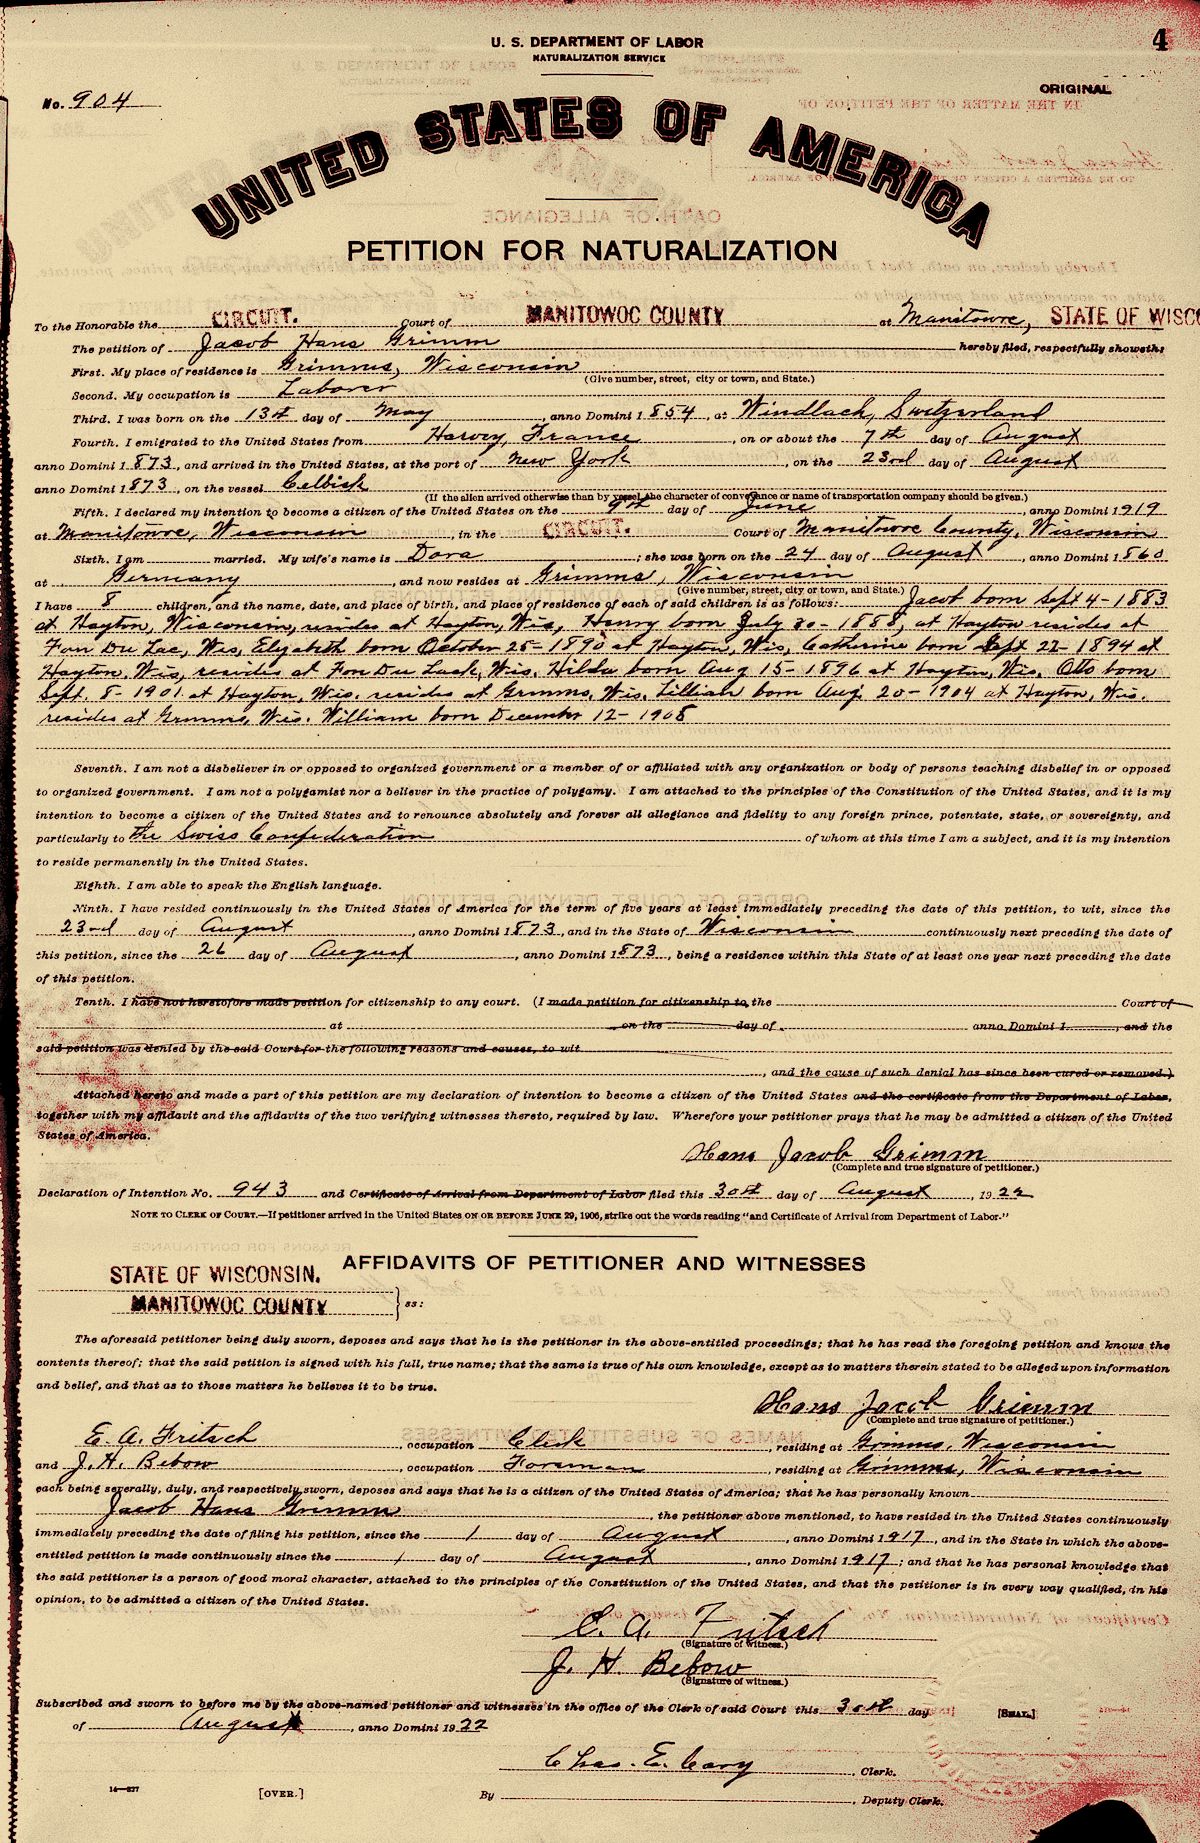 4
U. S. DEPARTMENT OF LABOR
NATURALIZATION SERVICE
No. 904
ORIGINAL
UNITED STATES OF AMERICA
PETITION FOR NATURALIZATION
To the Honorable the CIRCUIT. Court of MANITOWOC COUNTY at Manitowoc, STATE OF WISCO
The petition of Jacob Hans Grimm hereby filed, respectfully showeth:
First. My place of residence is Grimms, Wisconsin
(Give number, street, city or town, and State.)
Second. My occupation is Laborer
Third. I was born on the 13th day of May, anno Domini 1 854, at Windlach, Switzerland
Fourth. I emigrated to the United States from Harvy, France, on or about the 7th day of August
anno Domini 1 873, and arrived in the United States, at the port of New York, on the 23rd day of August
anno Domini 1 873, on the vessel Celbish
(If the alien arrived otherwise than by vessel, the character of conveyance or name of transportation company should be given.)
Fifth. I declared my intention to become a citizen of the United States on the 9th day of June, anno Domini 1919
at Manitowoc, Wisconsin, in the CIRCUIT. Court of Manitowoc County, Wisconsin
Sixth. I am married. My wife's name is Dora; she was born on the 24 day of August, anno Domini 1 860
at Germany, and now resides at Grimms, Wisconsin
(Give number, street, city or town, and State.)
I have 8 children, and the name, date, and place of birth, and place of residence of each of said children is as follows: Jacob born Sept 4-1883
at Hayton, Wisconsin, resides at Hayton, Wis, Henry born July 30-1888, at Hayton resides at
Fon Du Lac, Wis, Elyabeth born October 25-1890 at Hayton, Wis, Catherine born Sept 22-1894 at
Hayton, Wis, resides at Fon Du Lack, Wis. Hilda born Aug 15-1896 at Hayton, Wis. Otto born
Sept. 8-1901 at Hayton, Wis. resides at Grimms, Wis. Lillian born Aug. 20-1904 at Hayton, Wis.
resides at Grimms, Wis. William born December 12-1908
Seventh. I am not a disbeliever in or opposed to organized government or a member of or affiliated with any organization or body of persons teaching disbelief in or opposed
to organized government. I am not a polygamist nor a believer in the practice of polygamy. I am attached to the principles of the Constitution of the United States, and it is my
intention to become a citizen of the United States and to renounce absolutely and forever all allegiance and fidelity to any foreign prince, potentate, state, or sovereignty, and
particularly to the Swiss Confederation of whom at this time I am a subject, and it is my intention
to reside permanently in the United States.
Eighth. I am able to speak the English language.
Ninth. I have resided continuously in the United States of America for the term of five years at least immediately preceding the date of this petition, to wit, since the
23rd day of August, anno Domini 1 873, and in the State of Wisconsin continuously next preceding the date of
this petition, since the 26 day of August, anno Domini 1873, being a residence within this State of at least one year next preceding the date
of this petition.
Tenth. I have not heretofore made petition for citizenship to any court. (I made petition for citizenship to the Court of
at on the day of anno Domini 1, and the
said petition was denied by the said Court for the following reasons and causes, to wit
, and the cause of such denial has since been cured or removed.)
Attached hereto and made a part of this petition are my declaration of intention to become a citizen of the United States and the certificate from the Department of Labor,
together with my affidavit and the affidavits of the two verifying witnesses thereto, required by law. Wherefore your petitioner prays that he may be admitted a citizen of the United
States of America.
Hans Jacob Grimm
(Complete and true signature of petitioner.)
Declaration of Intention No. 943 and Certificate of Arrival from Department of Labor filed this 30th day of August, 1922
NOTE TO CLERK OF COURT.—If petitioner arrived in the United States ON OR BEFORE JUNE 29, 1906, strike out the words reading "and Certificate of Arrival from Department of Labor."
AFFIDAVITS OF PETITIONER AND WITNESSES
STATE OF WISCONSIN.
MANITOWOC COUNTY } ss:
The aforesaid petitioner being duly sworn, deposes and says that he is the petitioner in the above-entitled proceedings; that he has read the foregoing petition and knows the
contents thereof; that the said petition is signed with his full, true name; that the same is true of his own knowledge, except as to matters therein stated to be alleged upon information
and belief, and that as to those matters he believes it to be true.
Hans Jacob Grimm
(Complete and true signature of petitioner.)
E. A. Fritsch, occupation Clerk, residing at Grimms, Wisconsin
and J. H. Bebow, occupation Forsman, residing at Grimms, Wisconsin
each being severally, duly, and respectively sworn, deposes and says that he is a citizen of the United States of America; that he has personally known
Jacob Hans Grimm, the petitioner above mentioned, to have resided in the United States continuously
immediately preceding the date of filing his petition, since the 1 day of August, anno Domini 1917, and in the State in which the above-
entitled petition is made continuously since the 1 day of August, anno Domini 1917; and that he has personal knowledge that
the said petitioner is a person of good moral character, attached to the principles of the Constitution of the United States, and that the petitioner is in every way qualified, in his
opinion, to be admitted a citizen of the United States.
E. A. Fritsch
(Signature of witness.)
J. H. Bebow
(Signature of witness.)
Subscribed and sworn to before me by the above-named petitioner and witnesses in the office of the Clerk of said Court this 30th day
of August, anno Domini 1922
[SEAL.]
Chas. E. Cary, Clerk.
14—827
[OVER.]
By , Deputy Clerk.